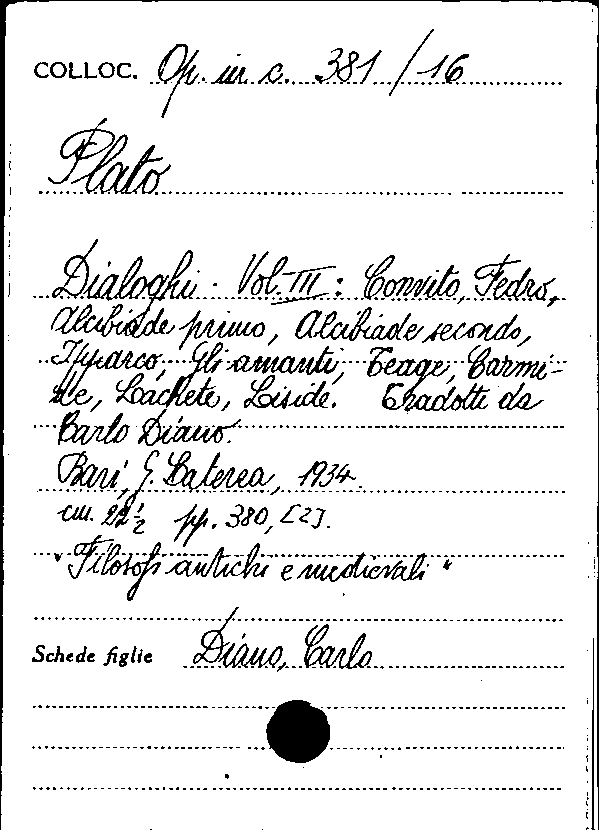 COLLOC. Op. in c. 381 / 16
Plato
Dialoghi. Vol. III: Convito, Fedro,
Alcibiade primo, Alcibiade secondo,
Ipparco, Gli amanti, Teage, Carmi-
de, Lachete, Liside. Tradotti da
Carlo Diano.
Bari, G. Laterza, 1934.
cm. 22½ pp. 380, [2].
"Filosofi antichi e medievali"
Schede figlie Diano, Carlo